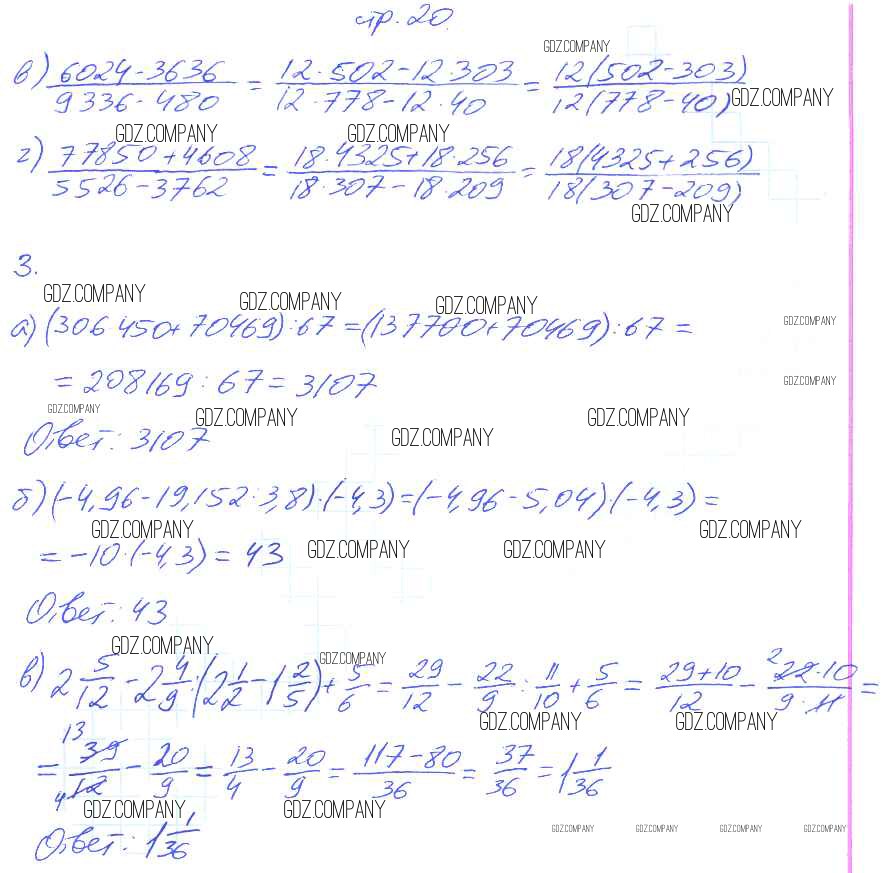 стр. 20.
в) (6024-3636)/(9336-480) = (12·502-12·303)/(12·778-12·40) = (12(502-303))/(12(778-40))
GDZ.COMPANY
GDZ.COMPANY
GDZ.COMPANY GDZ.COMPANY
г) (77850+4608)/(5526-3762) = (18·4325+18·256)/(18·307-18·209) = (18(4325+256))/(18(307-209))
GDZ.COMPANY
3.
GDZ.COMPANY GDZ.COMPANY GDZ.COMPANY
а) (306·450+70469):67=(137700+70469):67=
GDZ.COMPANY
=208169:67=3107
GDZ.COMPANY
GDZ.COMPANY GDZ.COMPANY GDZ.COMPANY GDZ.COMPANY
Ответ: 3107
б) (-4,96-19,152:3,8)·(-4,3)=(-4,96-5,04)·(-4,3)=
GDZ.COMPANY GDZ.COMPANY
=-10·(-4,3)=43
GDZ.COMPANY GDZ.COMPANY
Ответ: 43
GDZ.COMPANY GDZ.COMPANY
в) 2 5/12 - 2 4/9 : (2 1/2 - 1 2/5) + 5/6 = 29/12 - 22/9 : 11/10 + 5/6 = (29+10)/12 - (2 22·10)/(9·11) =
GDZ.COMPANY GDZ.COMPANY
= (13 39)/(4 12) - 20/9 = 13/4 - 20/9 = (117-80)/36 = 37/36 = 1 1/36
GDZ.COMPANY GDZ.COMPANY
Ответ: 1 1/36
GDZ.COMPANY GDZ.COMPANY GDZ.COMPANY GDZ.COMPANY